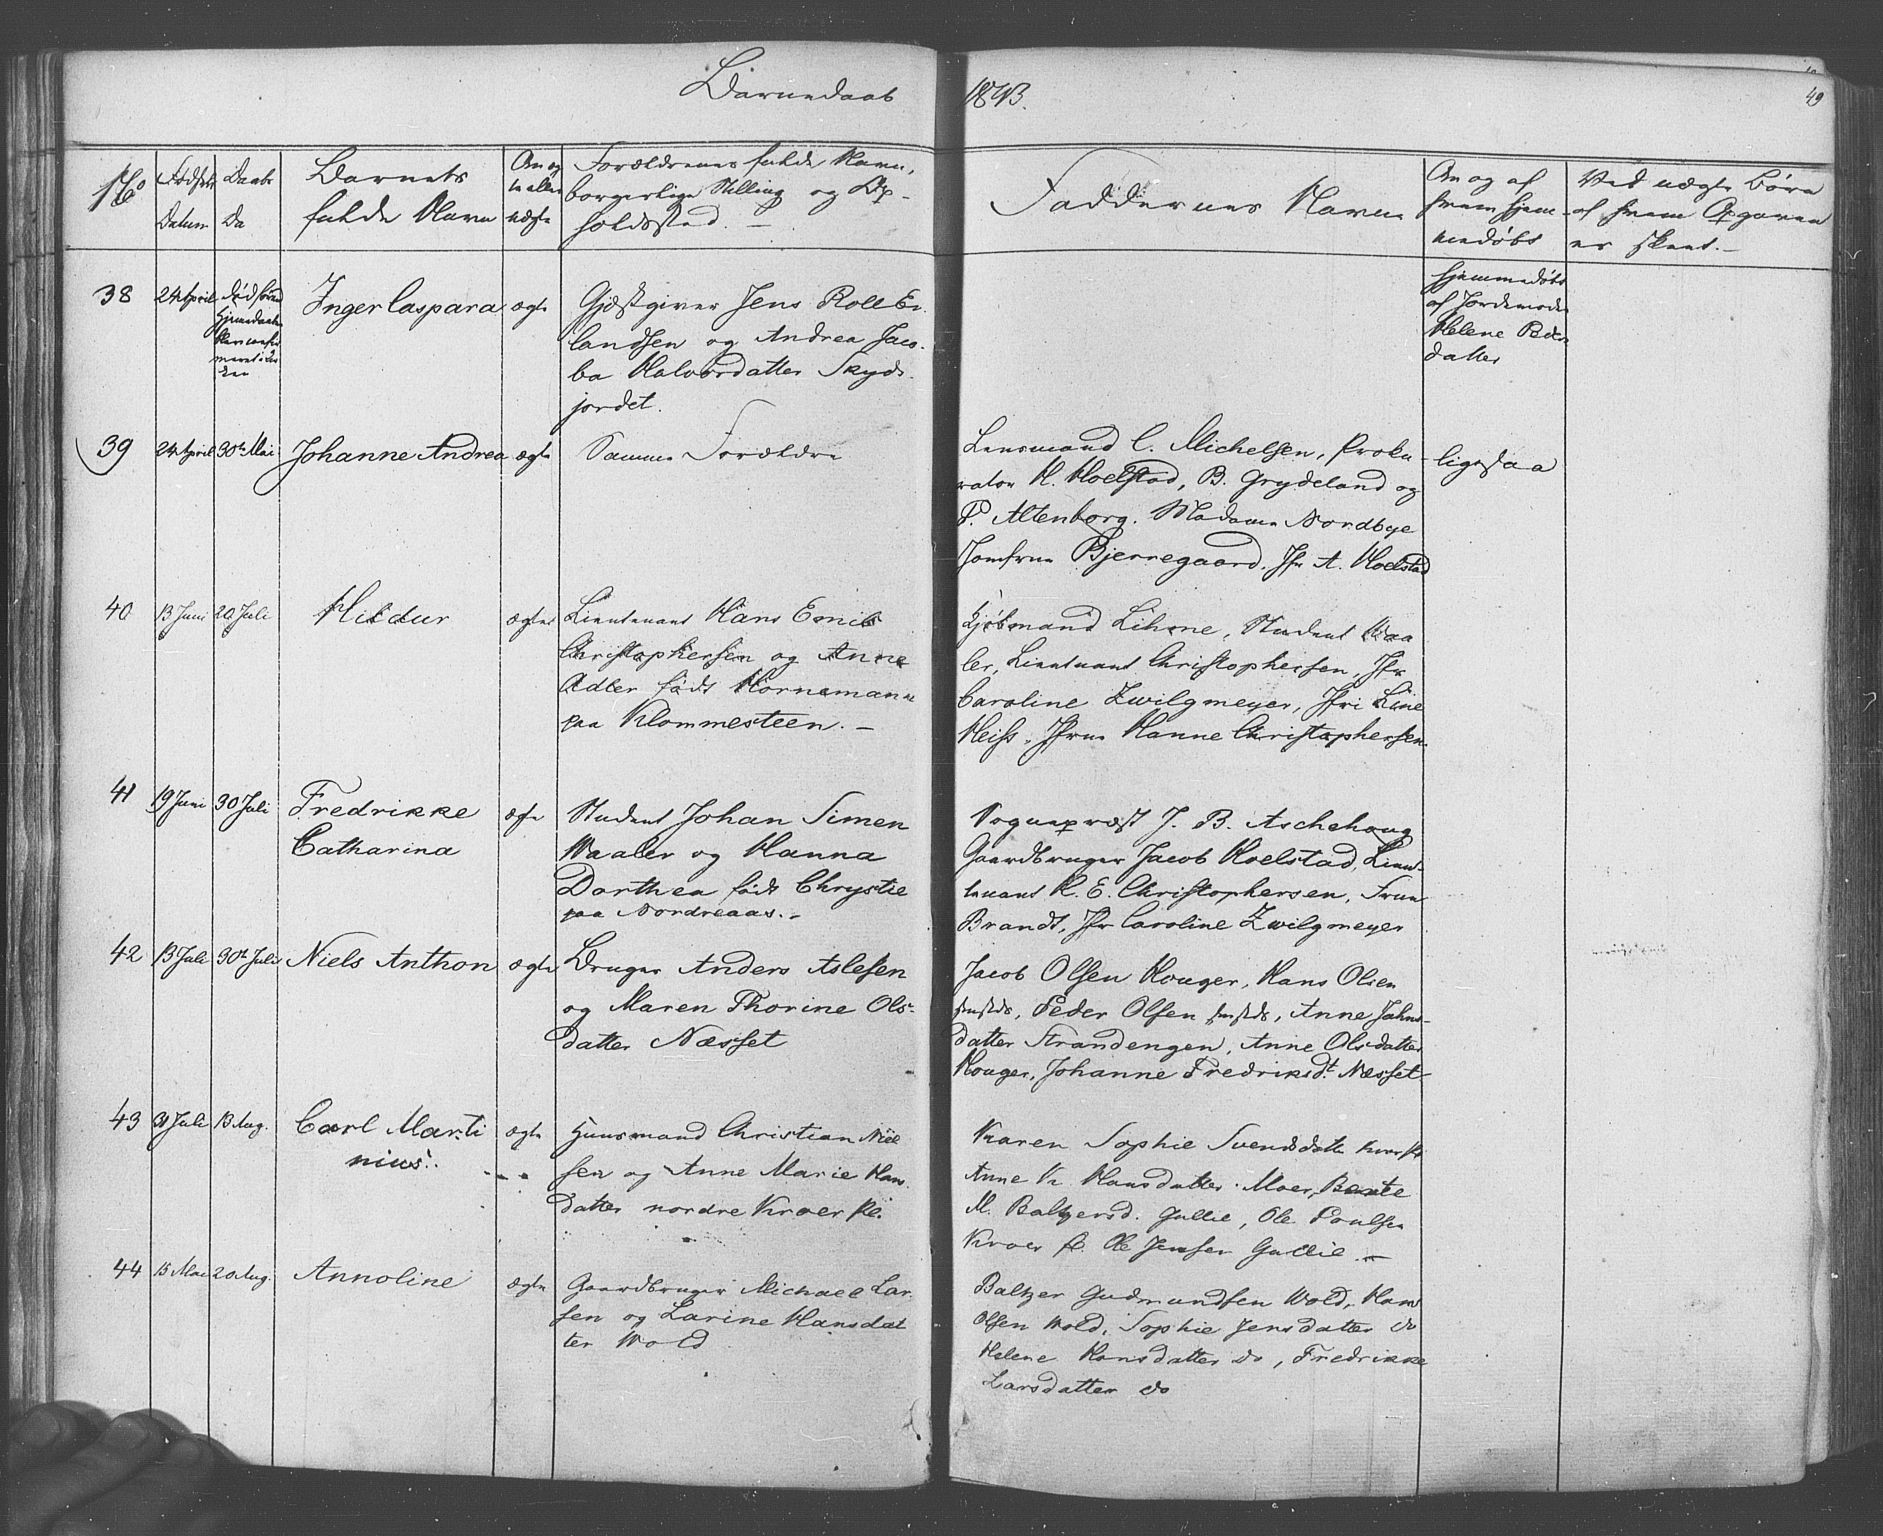 Barnedaab
1843.
49
No
Fødsels
Datum
Daabs
Do
Barnets
fulde Navn
Om og
uægte
Forældrenes fulde Navn,
borgerlige Stilling og Op-
holdssted. —
Faddernes Navne
Om og af
hvem hjem
medøbt
Ved uægte Børn
af hvem Opgaven
er skeet. —
38
24 April
Inger Caspara
ægte
Gjæstgiver Jens Roll Er-
landsen og Andrea Jaco-
ba Halvordatter Skyds-
jordet.
hjemmedøbt
af Jordemoder
Helene Peders
datter
39
24 April
30te Mai
Johanne Andrea
ægte
Samme Forældre
Lensmand C. Michelsen, Proku-
rator H. Hoelstad, B. Grydeland og
P. Altenborg. Madame Nordbye
Jomfrue Bjerregaard, Jfr A. Hoelstad
ligesaa
40
13 Juni
20 Juli
Hildur
ægte
Lieutenant Hans Emil
Christophersen og Anne
Adler født Hornemann
paa Klommesteen. —
Kjøbmand Lihme, Student Waa
ler, Lieutnant Christophersen, Jfr
Caroline Zwilgmeyer, Jfr Line
Heiss, Jfrue Hanne Christophersen.
41
19 Juni
30 Juli
Fredrikke
Catharina
ægte
Student Johan Simen
Waaler og Hanna
Dorthea født Chrystie
paa Nordreaas. -
Sognepræst J. B. Aschehoug
Gaardbruger Jacob Hoelstad, Lieut-
nant H. E. Christophersen, Frue
Brandt, Jfr Caroline Zwilgmeyer
42
13 Juli
30te Juli
Niels Anthon
ægte
Bruger Anders Aslesen
og Maren Thorine Ols-
datter Næsset
Jacob Olsen Houger, Hans Olsen
Peder Olsen Anne Johns-
datter Strandengen, Anne Olsdatter
Houger, Johanne Fredriksdt. Næsset
43
Juli
13 Aug.
Carl Marti
nius.
ægte
Huusmand Christian Niel
sen og Anne Marie Hans
datter nordre Kroer
Karen Sophie Svendsdatter
Anne K. Hansdatter Moer, Beate
M. Baltzersd. Gullie, Ole Poulsen
Kroer Ole Jensen Gullie. —
44
15 Mai
20 Aug.
Annoline
ægte
Gaardbruger Michael Lar
sen og Larine Hansdat
ter Wold
Baltzer Gudmundsen Wold, Hans
Olsen Wold, Sophie Jensdatter do
Helene Hansdatter do, Fredrikke
Larsdatter do